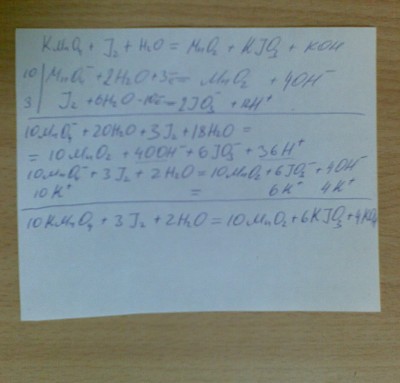 KMnO₄ + J₂ + H₂O = MnO₂ + KJO₃ + KOH
10 | MnO₄⁻ + 2H₂O + 3ē = MnO₂ + 4OH⁻
3 | J₂ + 6H₂O - 10ē = 2JO₃⁻ + 12H⁺
10MnO₄⁻ + 20H₂O + 3J₂ + 18H₂O =
= 10MnO₂ + 40OH⁻ + 6JO₃⁻ + 36H⁺
10MnO₄⁻ + 3J₂ + 2H₂O = 10MnO₂ + 6JO₃⁻ + 4OH⁻
10K⁺ = 6K⁺ 4K⁺
10KMnO₄ + 3J₂ + 2H₂O = 10MnO₂ + 6KJO₃ +